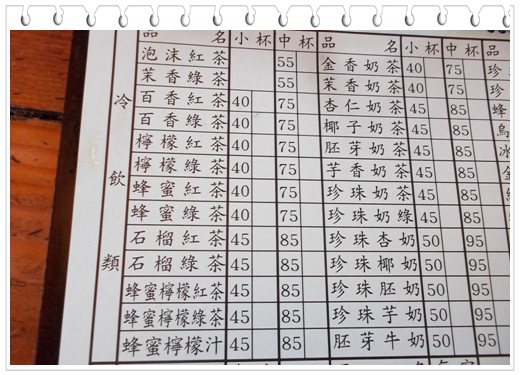 品名 小杯 中杯 品名 小杯 中杯
冷飲類
泡沫紅茶 55 金香奶茶 40 75 珍
茉香綠茶 55 茉香奶茶 40 75 珍
百香紅茶 40 75 杏仁奶茶 45 85 蜂
百香綠茶 40 75 椰子奶茶 45 85
檸檬紅茶 40 75 胚芽奶茶 45 85
檸檬綠茶 40 75 芋香奶茶 45 85
蜂蜜紅茶 40 75 珍珠奶茶 45 85
蜂蜜綠茶 40 75 珍珠奶綠 45 85
石榴紅茶 45 85 珍珠杏奶 50 95
石榴綠茶 45 85 珍珠椰奶 50 95
蜂蜜檸檬紅茶 45 85 珍珠胚奶 50 95
蜂蜜檸檬綠茶 45 85 珍珠芋奶 50 95
蜂蜜檸檬汁 45 85 胚芽牛奶 50 95